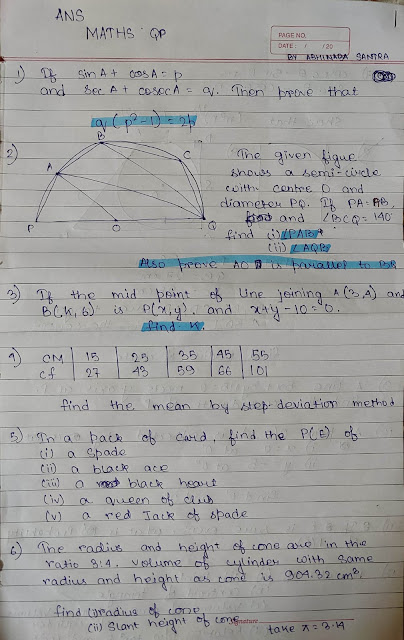 ANS
MATHS QP
PAGE NO.
DATE: / /20
BY ABHINABA SANTRA
1) If sin A + cos A = p
and sec A + cosec A = q. Then prove that
q (p²-1) = 2p
2) The given figure
shows a semi-circle
with centre O and
diameter PQ. If PA = AB,
and ∠BCQ = 140°
find (i) ∠PAB
(ii) ∠AQB
Also prove AO is parallel to BQ
B
A
C
P
O
Q
3) If the mid point of line joining A (3,4) and
B(k, 6) is P(x,y). and x+y-10=0.
find k.
4) CM | 15 | 25 | 35 | 45 | 55
cf | 27 | 43 | 59 | 66 | 101
find the mean by step-deviation method
5) In a pack of card, find the P(E) of
(i) a Spade
(ii) a black ace
(iii) a black heart
(iv) a queen of club
(v) a red Jack of spade
6) The radius and height of cone are in the
ratio 3:4. volume of cylinder with same
radius and height as cone is 904.32 cm³.
find (i) radius of cone
(ii) Slant height of cone
Signature
take π = 3.14